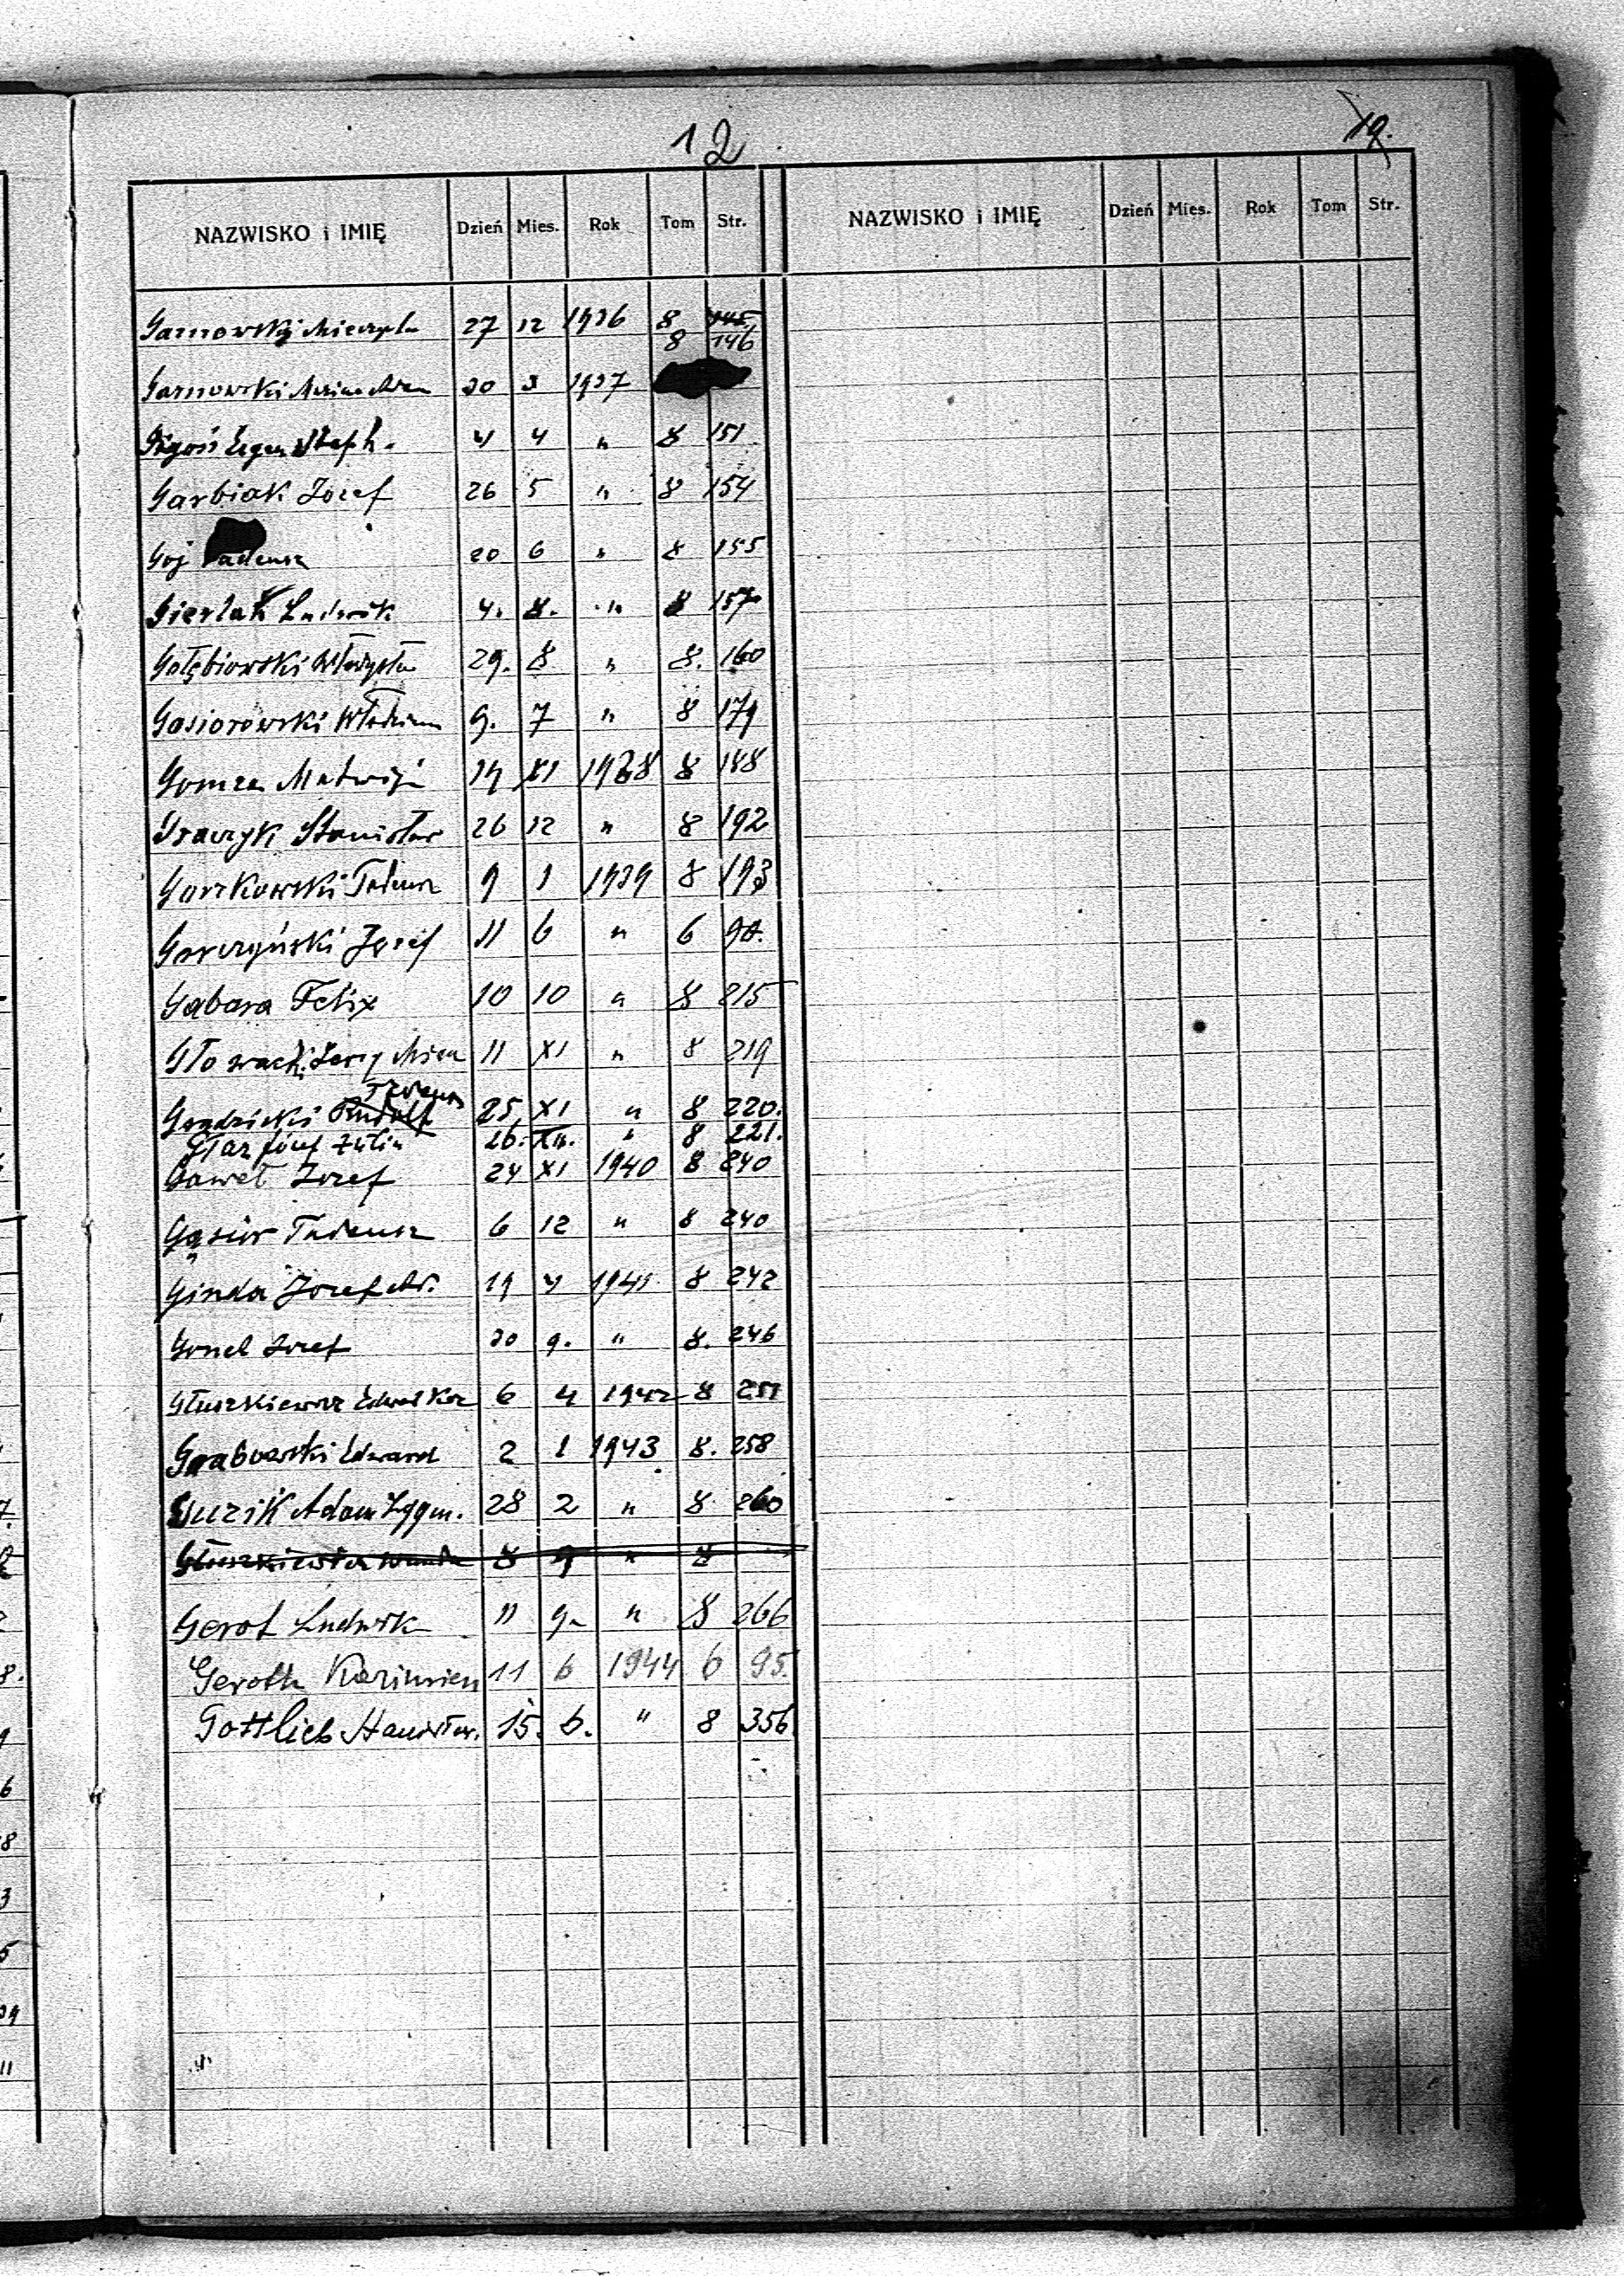 12
NAZWISKO i IMIĘ Dzień Mies. Rok Tom Str. NAZWISKO i IMIĘ Dzień Mies. Rok Tom Str.
Garnowski 27 12 1936 8 145
8 146
Garnowski 30 3 1937
4 4 " 8 151
Garbiak Jozef 26 5 " 8 154
Goj Tadeusz 20 6 " 8 155
Gierlak Ludwik 4. 8. " 8 157
Gołębiowski 29. 8 " 8. 160
Gasiorowski 9. 7 " 8 179
Gomza XI 1938 8 188
Graczyk Stanisław 26 12 " 8 192
Gorzkowski Tadeusz 9 1 1939 8 193
Gorczyński Józef 11 6 " 6 90.
Gabara Felix 10 10 " 8 215
Głowacki Jerzy 11 XI " 8 219
Tadeusz
Grądzicki Rudolf 25 XI " 8 220.
Głaz Józef 26. XII. " 8 221.
Gaweł Jozef 24 XI 1940 8 240
Gąsior Tadeusz 6 12 " 8 240
Ginda Jozef 19 4 1941 8 242
Jozef 30 9. " 8. 246
Głuszkiewicz 6 4 1942 8 251
Grabowski Edward 2 1 1943 8. 258
Guzik Adam Zygm. 28 2 " 8 260
Głuszkiewicz 8 9 " 8
Gerot Ludwik 11 9. " 8 266
Geroth Kazimierz 11 6 1944 6 95.
Gottlieb Stanisław. 15. 6. " 8 356.